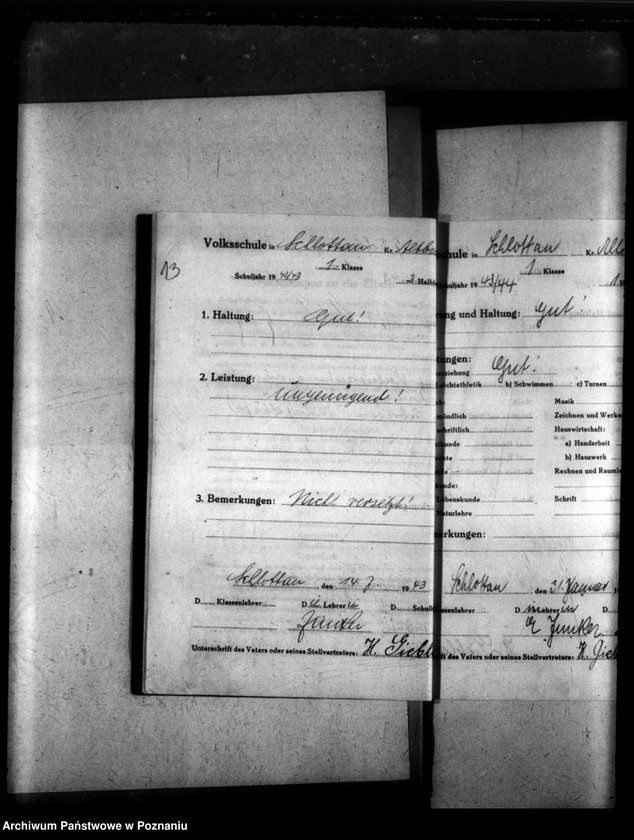 13
Volksschule in Schlottau Kr.
1. Klasse
Schuljahr 19 42/43 2 Halbj
1. Haltung: Gut!
2. Leistung:
ungenügend!
3. Bemerkungen: Nicht versetzt!
Schlottau, den 14. 7. 1943
D Klassenlehrer D ie Lehrer in D Schull
Junker
Unterschrift des Vaters oder seines Stellvertreters: H. Giebl
chule in Schlottau Kr.
1 Klasse
chuljahr 19 43/44 1 H
ung und Haltung: Gut!
tungen:
ziehung Gut!
eichtathletik b) Schwimmen c) Turnen
Musik
ündlich Zeichnen und Werke
chriftlich Hauswirtschaft:
tkunde a) Handarbeit
chte b) Hauswerk
Rechnen und Raumle
kunde:
Lebenskunde Schrift
Naturlehre
erkungen:
Schlottau, den 31. Januar 1
ssenlehrer D ie Lehrer in D
E. Junker.
ift des Vaters oder seines Stellvertreters: H. Gieb
Archiwum Państwowe w Poznaniu